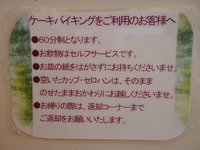 ケーキバイキングをご利用のお客様へ
●60分制となります。
●お飲物はセルフサービスです。
●お皿の紙をはがさずにお持ちくださいませ。
●空いたカップ・セロハンは、そのまま
のせたままおかわりにお越しくださいませ。
●お帰りの際は、返却コーナーまで
ご返却をお願いいたします。